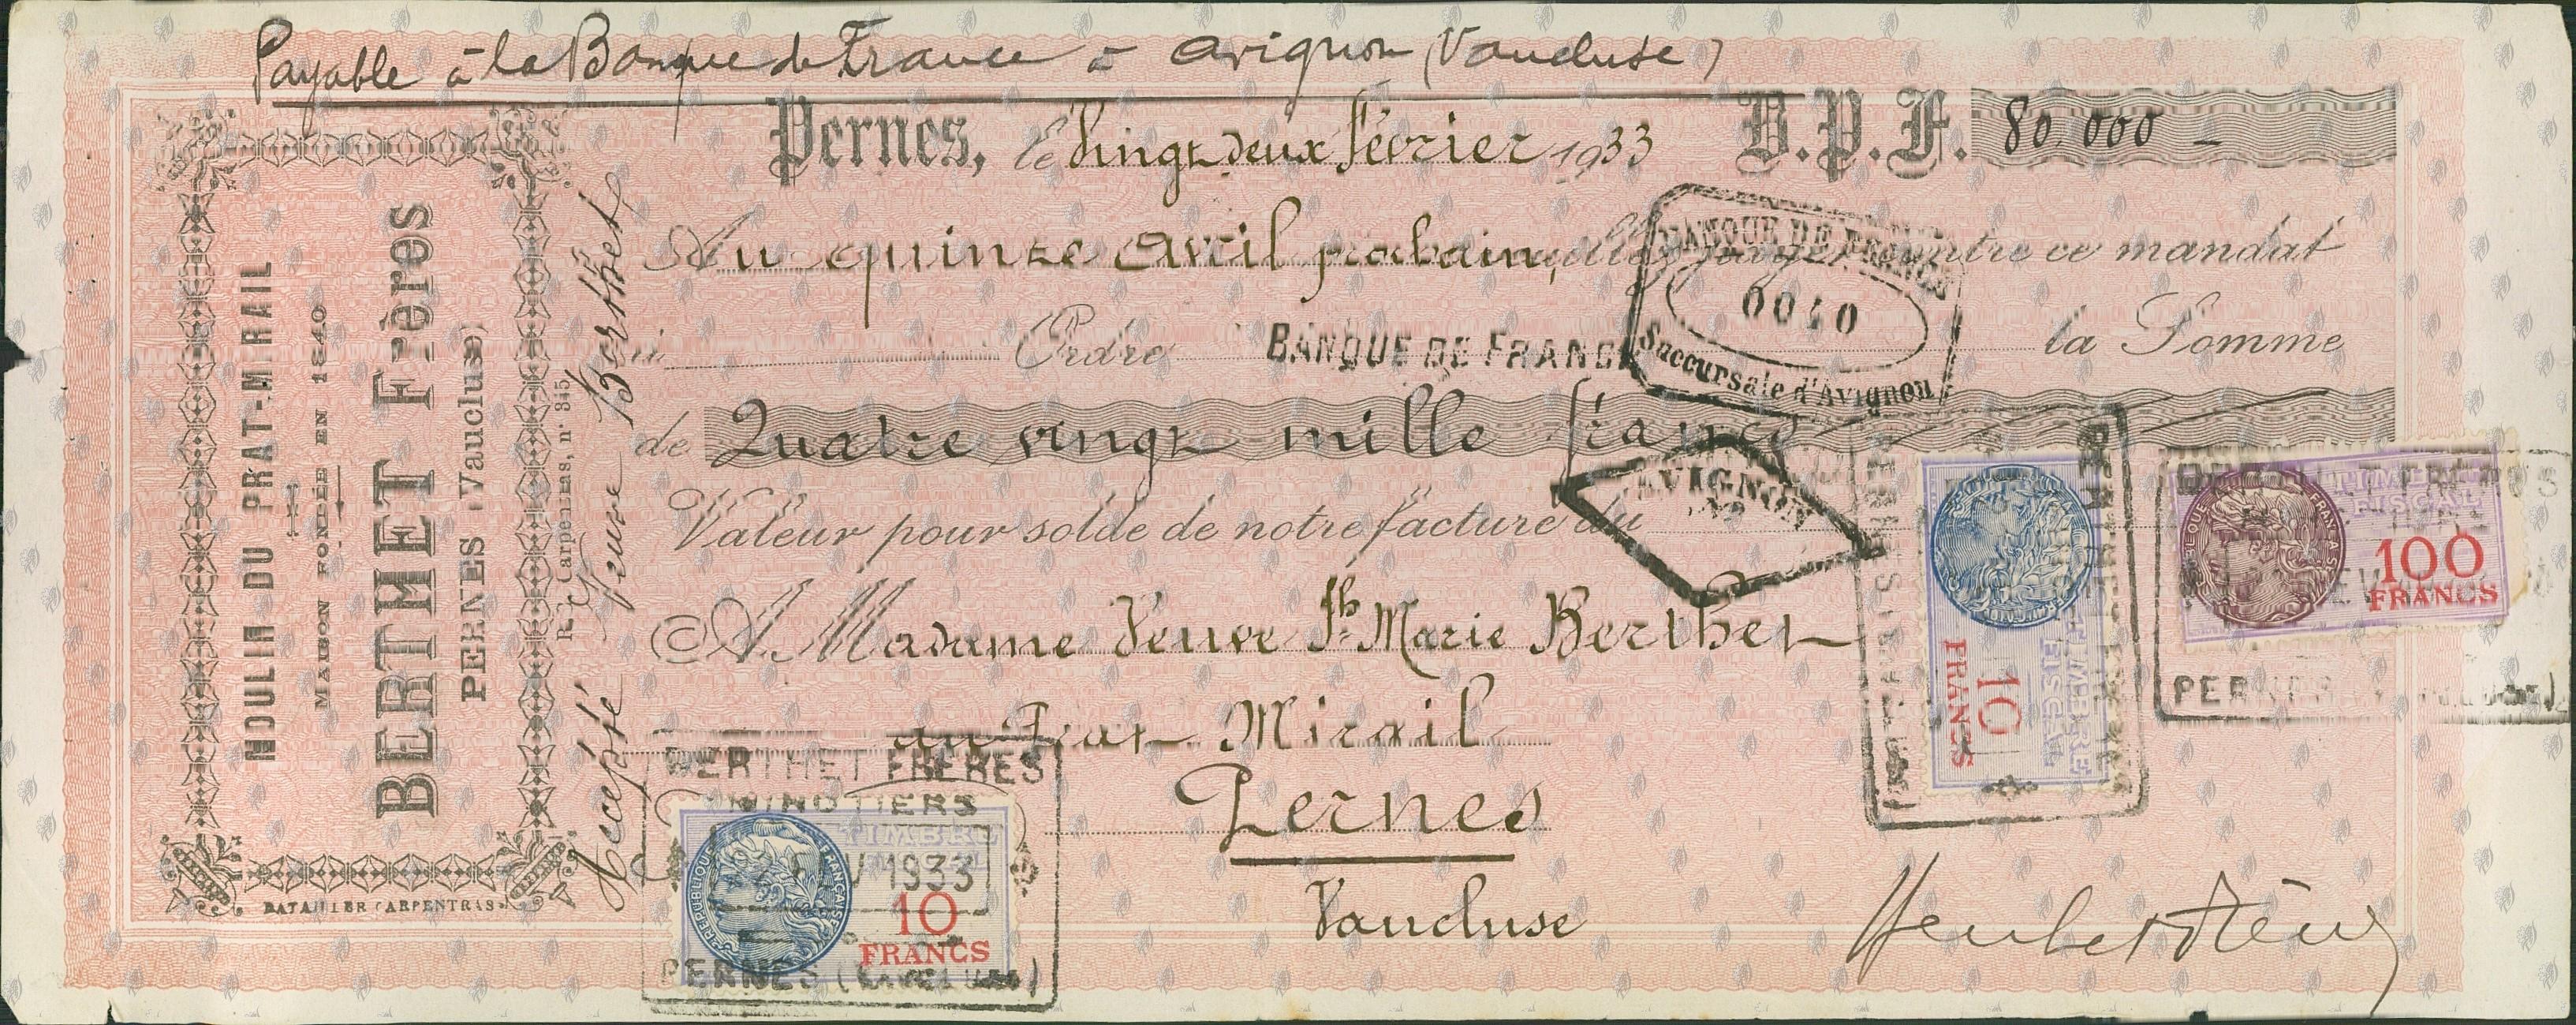 Payable à la Banque de France à Avignon (Vaucluse)
Pernes, le Vingt deux Février 1933 B.P.F. 80.000 -
Au quinze Avril prochain, contre ce mandat
Ordre BANQUE DE FRANCE la Somme
de Quatre vingt mille francs
Valeur pour solde de notre facture du
A Madame Veuve Jh Marie Berthet
au Prat Mirail
Pernes
Vaucluse
MOULIN DU PRAT-MIRAIL
MAISON FONDÉE EN 1840
BERTHET Frères
PERNES (Vaucluse)
R. C. Carpentras, n° 345
BATAILLER CARPENTRAS
Accepté Veuve Berthet
BANQUE DE FRANCE
0040
Succursale d'Avignon
AVIGNON
BERTHET FRÈRES
MINOTIERS
1933
PERNES (Vaucluse)
RÉPUBLIQUE FRANÇAISE
TIMBRE
10
FRANCS
TIMBRE
FISCAL
10
FRANCS
TIMBRE
FISCAL
100
FRANCS
PERNES